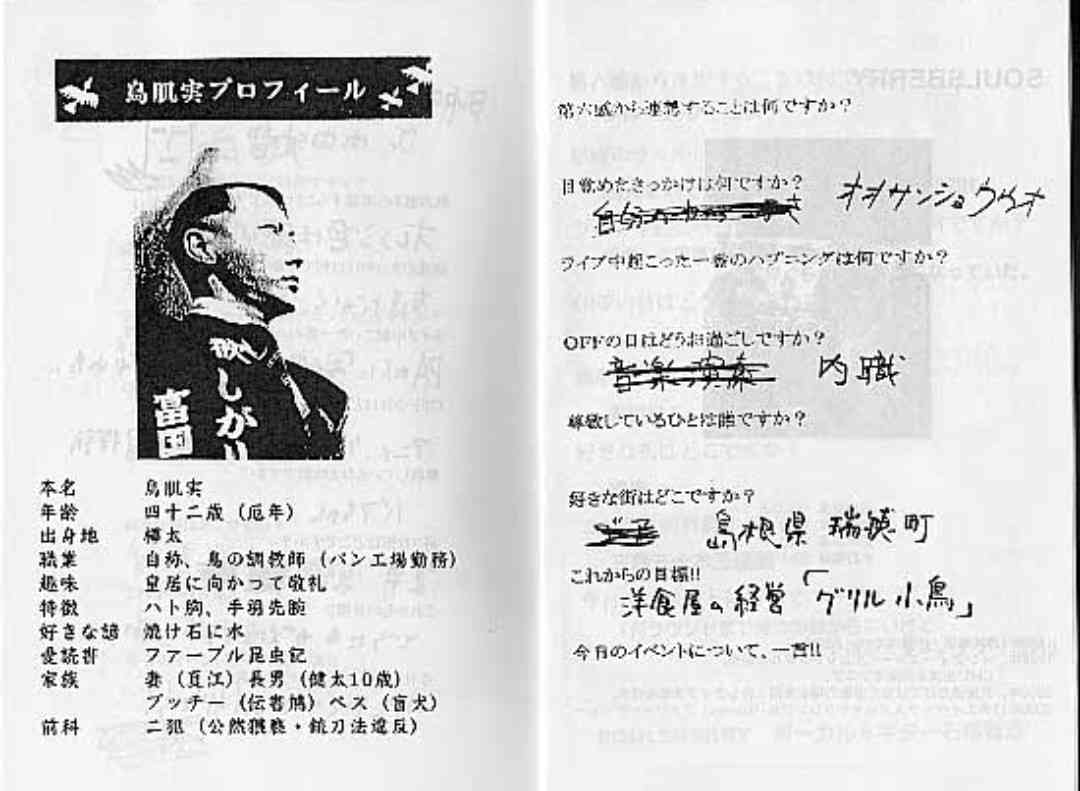 鳥肌実プロフィール
欲しがり
富国
本名 鳥肌実
年齢 四十二歳（厄年）
出身地 樺太
職業 自称、鳥の調教師（パン工場勤務）
趣味 皇居に向かって敬礼
特徴 ハト胸、手羽先腕
好きな諺 焼け石に水
愛読書 ファーブル昆虫記
家族 妻（夏江）長男（健太10歳）
ブッチー（伝書鳩）ベス（盲犬）
前科 二犯（公然猥褻・銃刀法違反）
SOULSBERRY
第六感から連想することは何ですか？
目覚めたきっかけは何ですか？
オオサンショウウオ
ライブ中起こった一番のハプニングは何ですか？
OFFの日はどうお過ごしですか？
音楽の演奏 内職
尊敬しているひとは誰ですか？
好きな街はどこですか？
島根県 瑞穂町
これからの目標!!
洋食屋の経営「グリル小鳥」
今日のイベントについて、一言!!